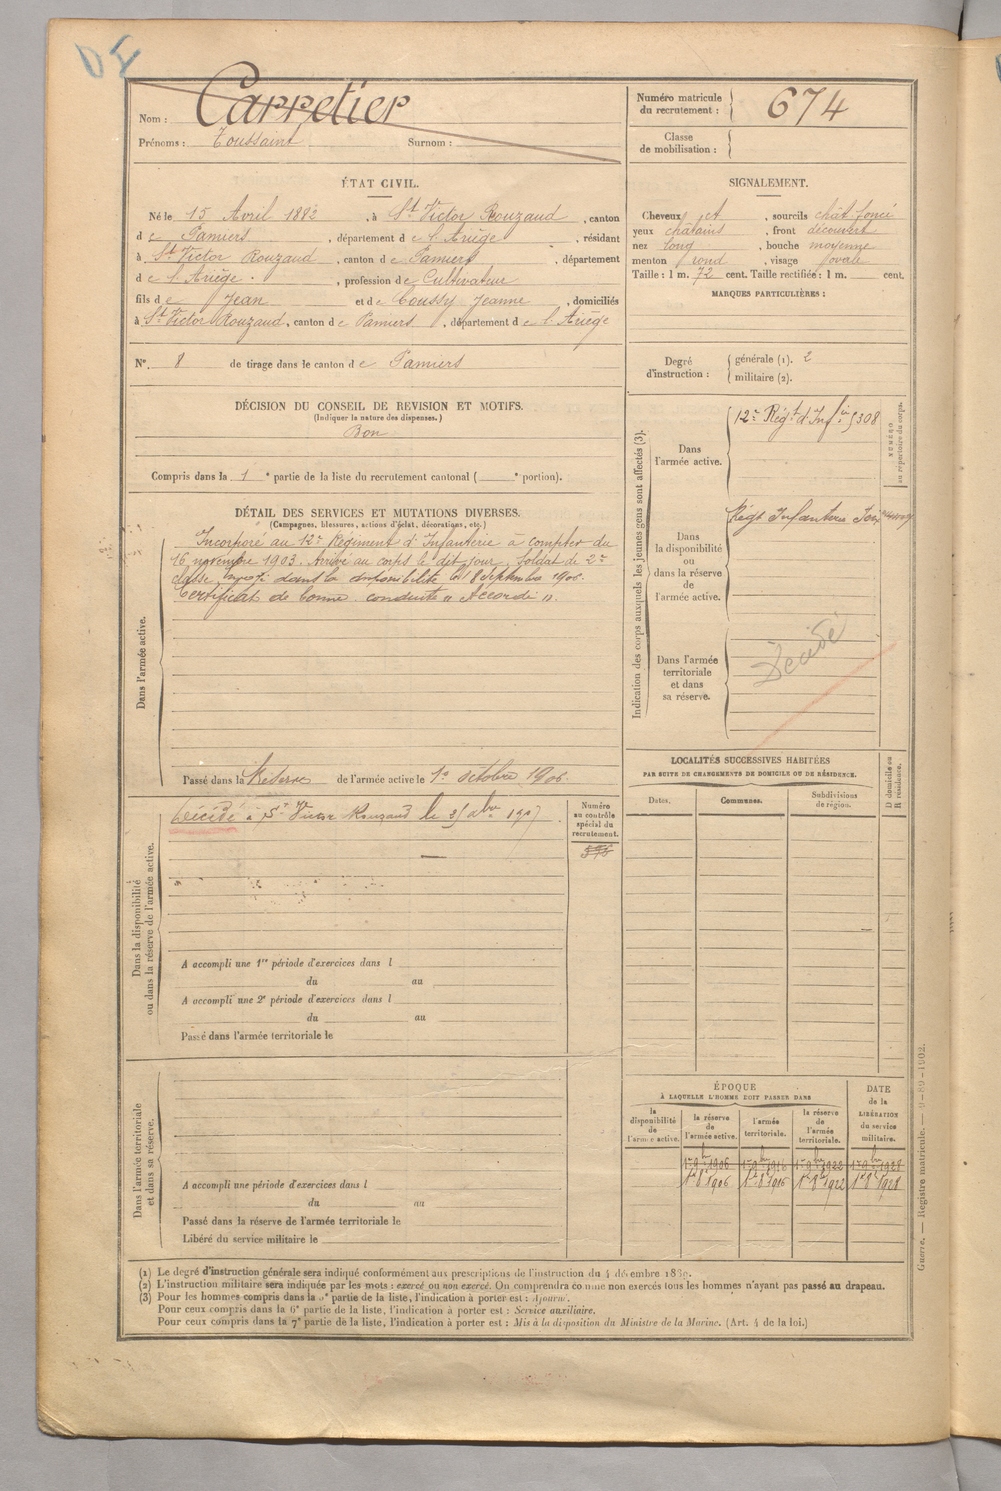 DE
Nom : Carretier
Prénoms : Toussaint Surnom :
Numéro matricule du recrutement : 674
Classe de mobilisation :
ÉTAT CIVIL.
Né le 15 Avril 1882, à St Victor Rouzaud, canton
de Pamiers, département de l'Ariège, résidant
à St Victor Rouzaud, canton de Pamiers, département
de l'Ariège, profession de Cultivateur
fils de Jean et de Toussy Jeanne, domiciliés
à St Victor Rouzaud, canton de Pamiers, département de l'Ariège
N°. 8 de tirage dans le canton de Pamiers
SIGNALEMENT.
Cheveux et, sourcils chât. foncé
yeux châtains, front découvert
nez long, bouche moyenne
menton rond, visage ovale
Taille : 1 m. 72 cent. Taille rectifiée : 1 m. cent.
MARQUES PARTICULIÈRES :
Degré d'instruction :
générale (1). 2
militaire (2).
DÉCISION DU CONSEIL DE REVISION ET MOTIFS.
(Indiquer la nature des dispenses.)
Bon
Compris dans la 1e partie de la liste du recrutement cantonal ( e portion).
DÉTAIL DES SERVICES ET MUTATIONS DIVERSES.
(Campagnes, blessures, actions d'éclat, décorations, etc.)
Dans l'armée active.
Incorporé au 12e Régiment d'Infanterie à compter du
16 novembre 1903. Arrivé au corps le dit jour. Soldat de 2e
classe. dans la disponibilité le 18 Septembre 1906.
Certificat de bonne conduite "Accordé".
Passé dans la Réserve de l'armée active le 1er octobre 1906
Indication des corps auxquels les jeunes gens sont affectés (3).
NUMÉRO au répertoire du corps.
Dans l'armée active. 12e Régt d'Infie 5308
Dans la disponibilité ou dans la réserve de l'armée active. Régt Infanterie
Dans l'armée territoriale et dans sa réserve. Décédé
LOCALITÉS SUCCESSIVES HABITÉES
PAR SUITE DE CHANGEMENTS DE DOMICILE OU DE RÉSIDENCE.
Dates. Communes. Subdivisions de région. D domicile ou R résidence.
Dans la disponibilité ou dans la réserve de l'armée active.
Décédé à St Victor Rouzaud le 1907
Numéro au contrôle spécial du recrutement.
A accompli une 1re période d'exercices dans l
du au
A accompli une 2e période d'exercices dans l
du au
Passé dans l'armée territoriale le
Dans l'armée territoriale et dans sa réserve.
A accompli une période d'exercices dans l
du au
Passé dans la réserve de l'armée territoriale le
Libéré du service militaire le
ÉPOQUE
À LAQUELLE L'HOMME DOIT PASSER DANS
la disponibilité de l'armée active. la réserve de l'armée active. l'armée territoriale. la réserve de l'armée territoriale. DATE de la LIBÉRATION du service militaire.
1er 9bre 1906 1er 9bre 1916 1er 9bre 1922 1er 9bre 1928
1er 8bre 1906 1er 8bre 1916 1er 8bre 1922 1er 8bre 1928
(1) Le degré d'instruction générale sera indiqué conformément aux prescriptions de l'instruction du 4 décembre 1889.
(2) L'instruction militaire sera indiquée par les mots : exercé ou non exercé. On comprendra comme non exercés tous les hommes n'ayant pas passé au drapeau.
(3) Pour les hommes compris dans la 5e partie de la liste, l'indication à porter est : Ajourné.
Pour ceux compris dans la 6e partie de la liste, l'indication à porter est : Service auxiliaire.
Pour ceux compris dans la 7e partie de la liste, l'indication à porter est : Mis à la disposition du Ministre de la Marine. (Art. 4 de la loi.)
Guerre. — Registre matricule. — 9-89-1902.